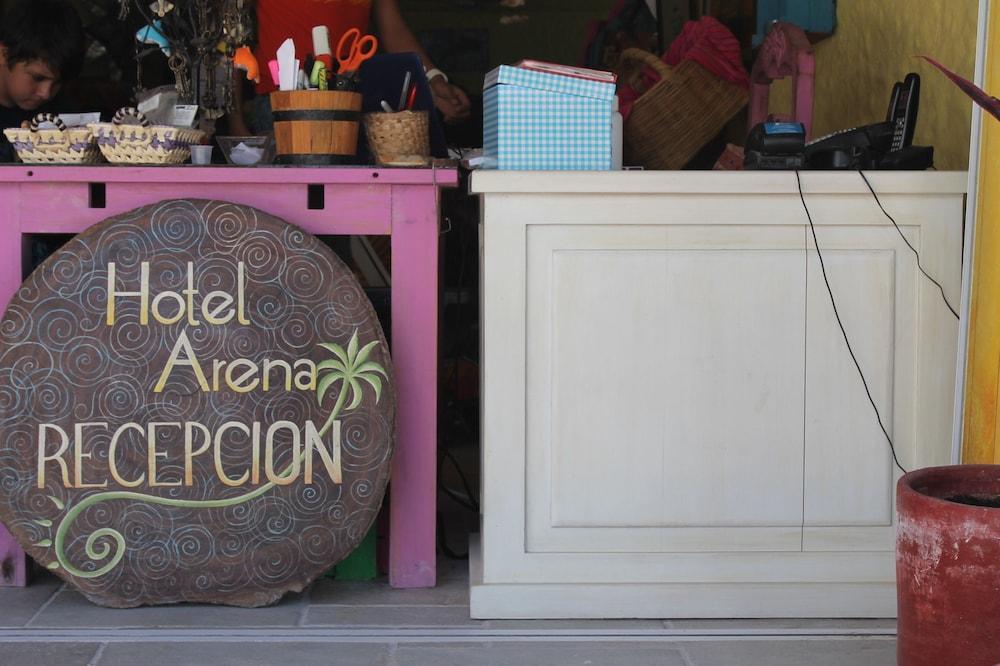 Hotel
Arena
RECEPCION